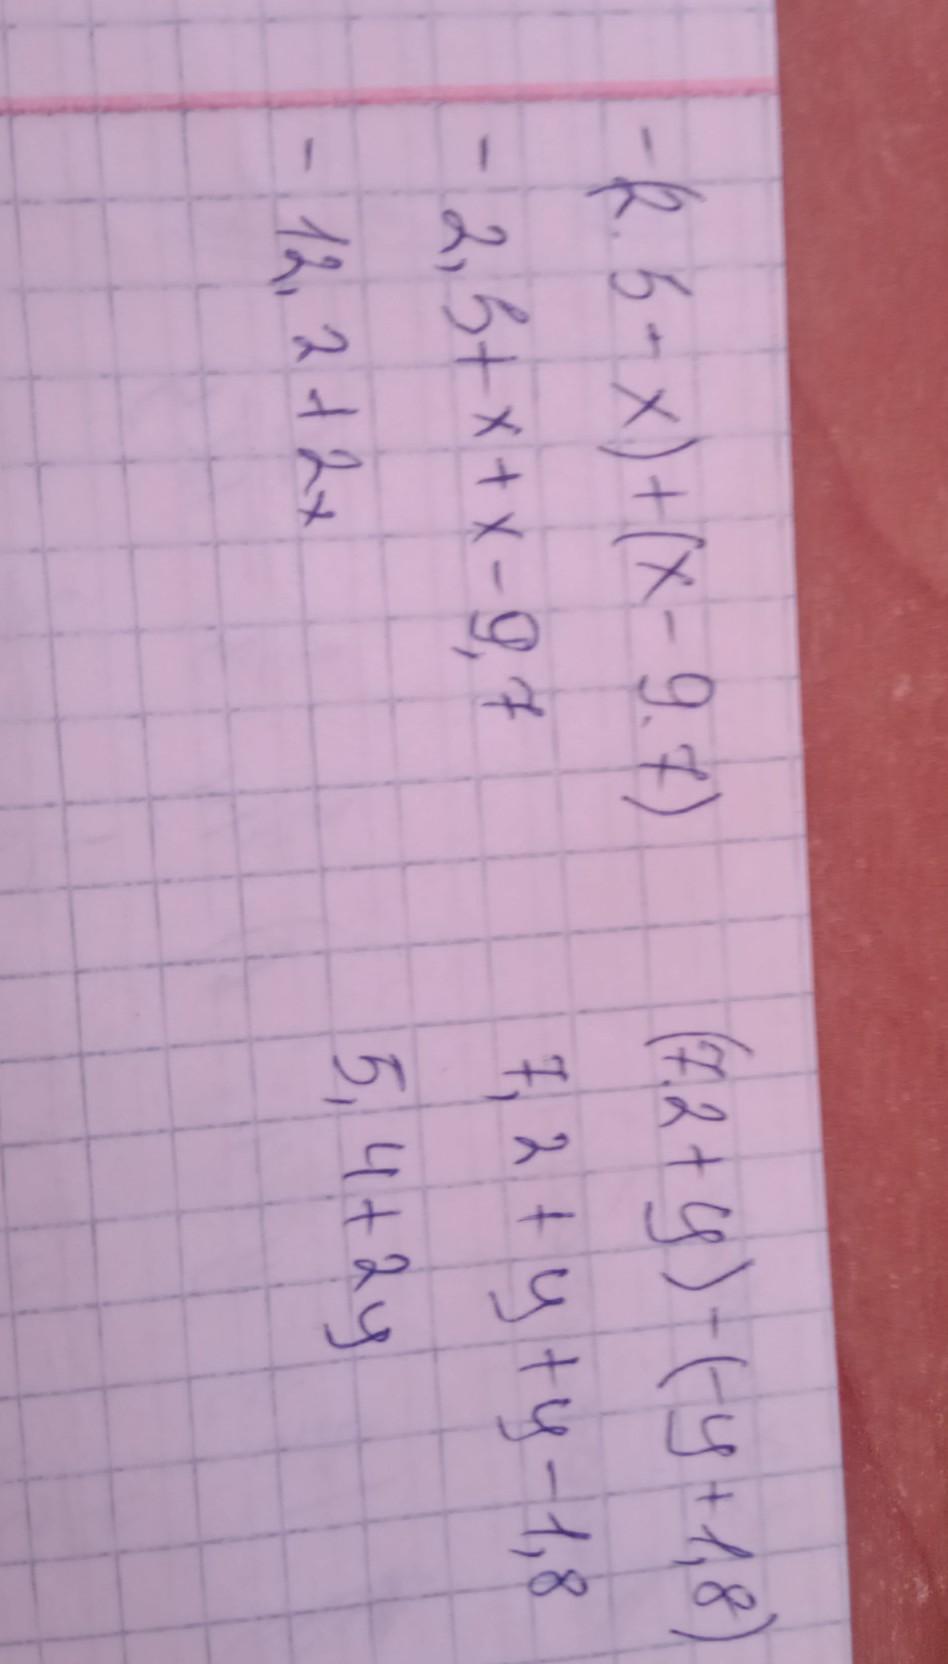 -(2.5-x)+(x-9.7)
-2,5+x+x-9,7
-12,2+2x
(7.2+y)-(-y+1,8)
7,2+y+y-1,8
5,4+2y